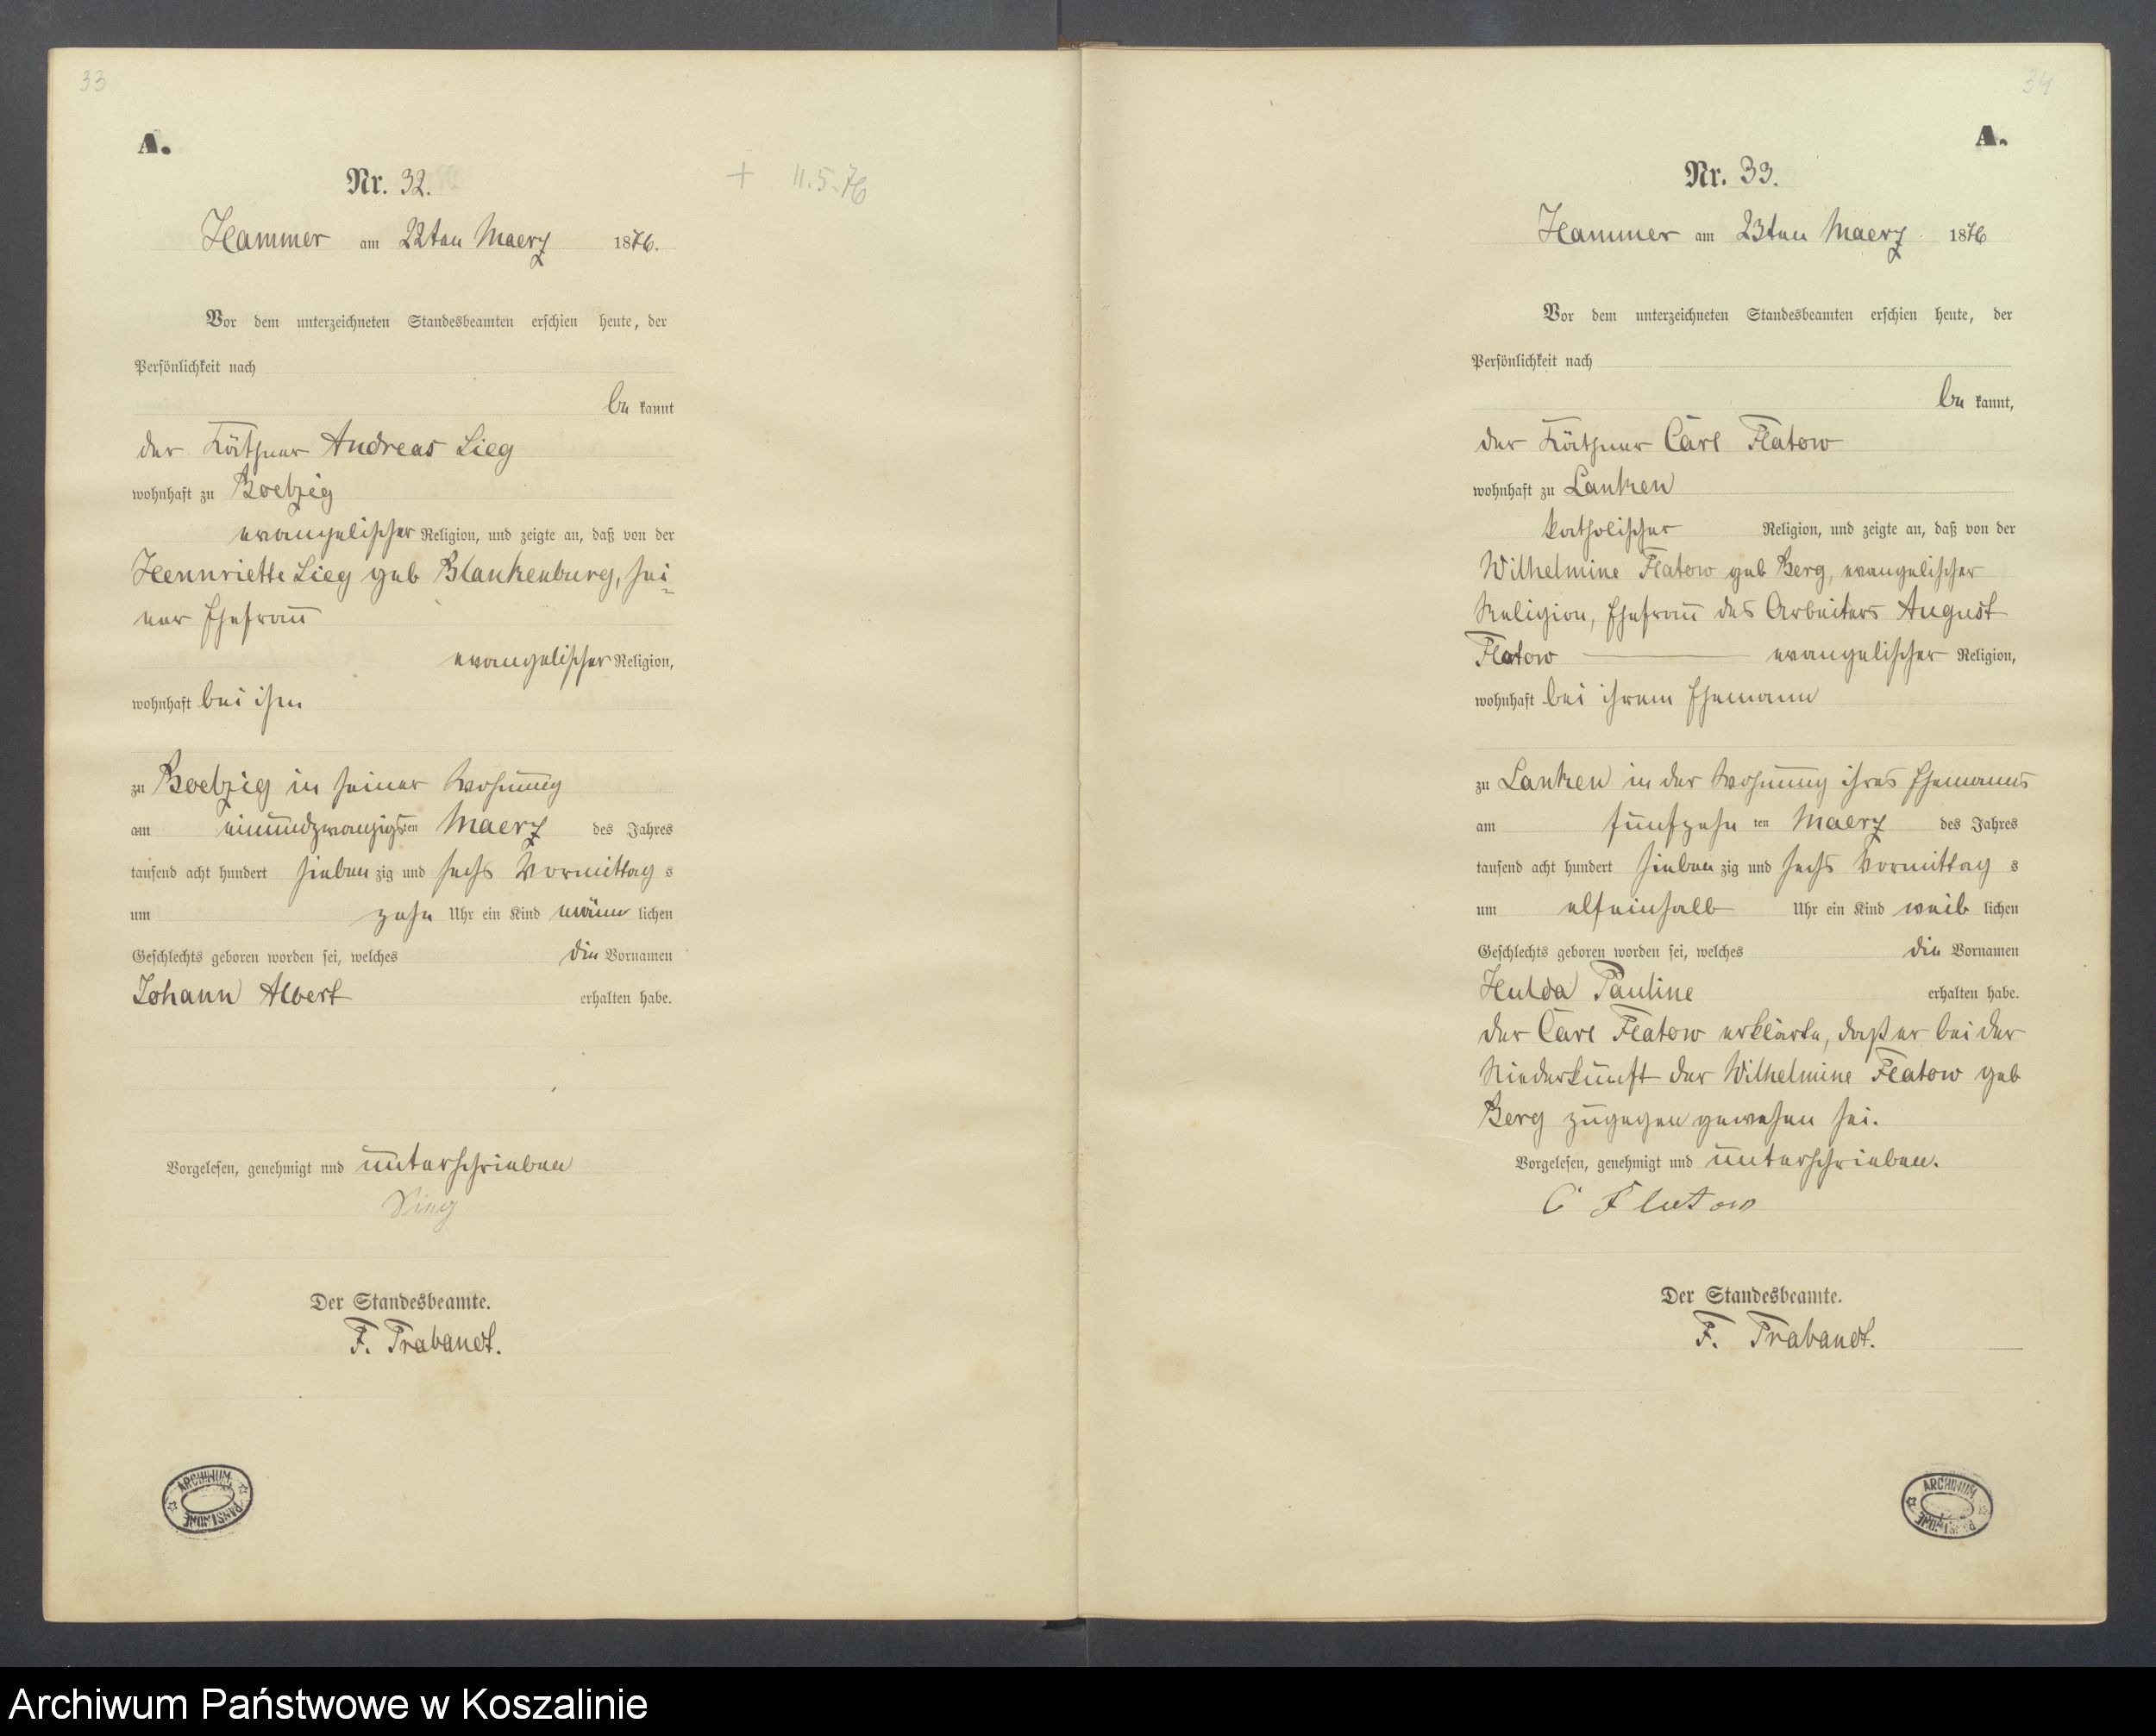 33
A.
Nr. 32.
+ 11.5.76
Hammer am 22ten Maerz 1876.
Vor dem unterzeichneten Standesbeamten erschien heute, der
Persönlichkeit nach
be kannt
der Käthner Andreas Lieg
wohnhaft zu Boetzig
evangelischer Religion, und zeigte an, daß von der
Hennriette Lieg geb Blankenburg, sei-
ner Ehefrau
evangelischer Religion,
wohnhaft bei ihm
zu Boetzig in seiner Wohnung
am einundzwanzigsten Maerz des Jahres
tausend acht hundert sieben zig und sechs Vormittag s
um zehn Uhr ein Kind männ lichen
Geschlechts geboren worden sei, welches die Vornamen
Johann Albert erhalten habe.
Vorgelesen, genehmigt und unterschrieben
Lieg
Der Standesbeamte.
F. Trabandt.
ARCHIWUM PAŃSTWOWE
34
A.
Nr. 33.
Hammer am 23ten Maerz 1876
Vor dem unterzeichneten Standesbeamten erschien heute, der
Persönlichkeit nach
be kannt,
der Käthner Carl Flatow
wohnhaft zu Lanken
katholischer Religion, und zeigte an, daß von der
Wilhelmine Flatow geb Berg, evangelischer
Religion, Ehefrau des Arbeiters August
Flatow evangelischer Religion,
wohnhaft bei ihrem Ehemann
zu Lanken in der Wohnung ihres Ehemanns
am fünfzehn ten Maerz des Jahres
tausend acht hundert sieben zig und sechs Vormittag s
um elfeinhalb Uhr ein Kind weib lichen
Geschlechts geboren worden sei, welches die Vornamen
Hulda Pauline erhalten habe.
der Carl Flatow erklärte, daß er bei der
Niederkunft der Wilhelmine Flatow geb
Berg zugegen gewesen sei.
Vorgelesen, genehmigt und unterschrieben.
C Flatow
Der Standesbeamte.
F. Trabandt.
ARCHIWUM PAŃSTWOWE
Archiwum Państwowe w Koszalinie